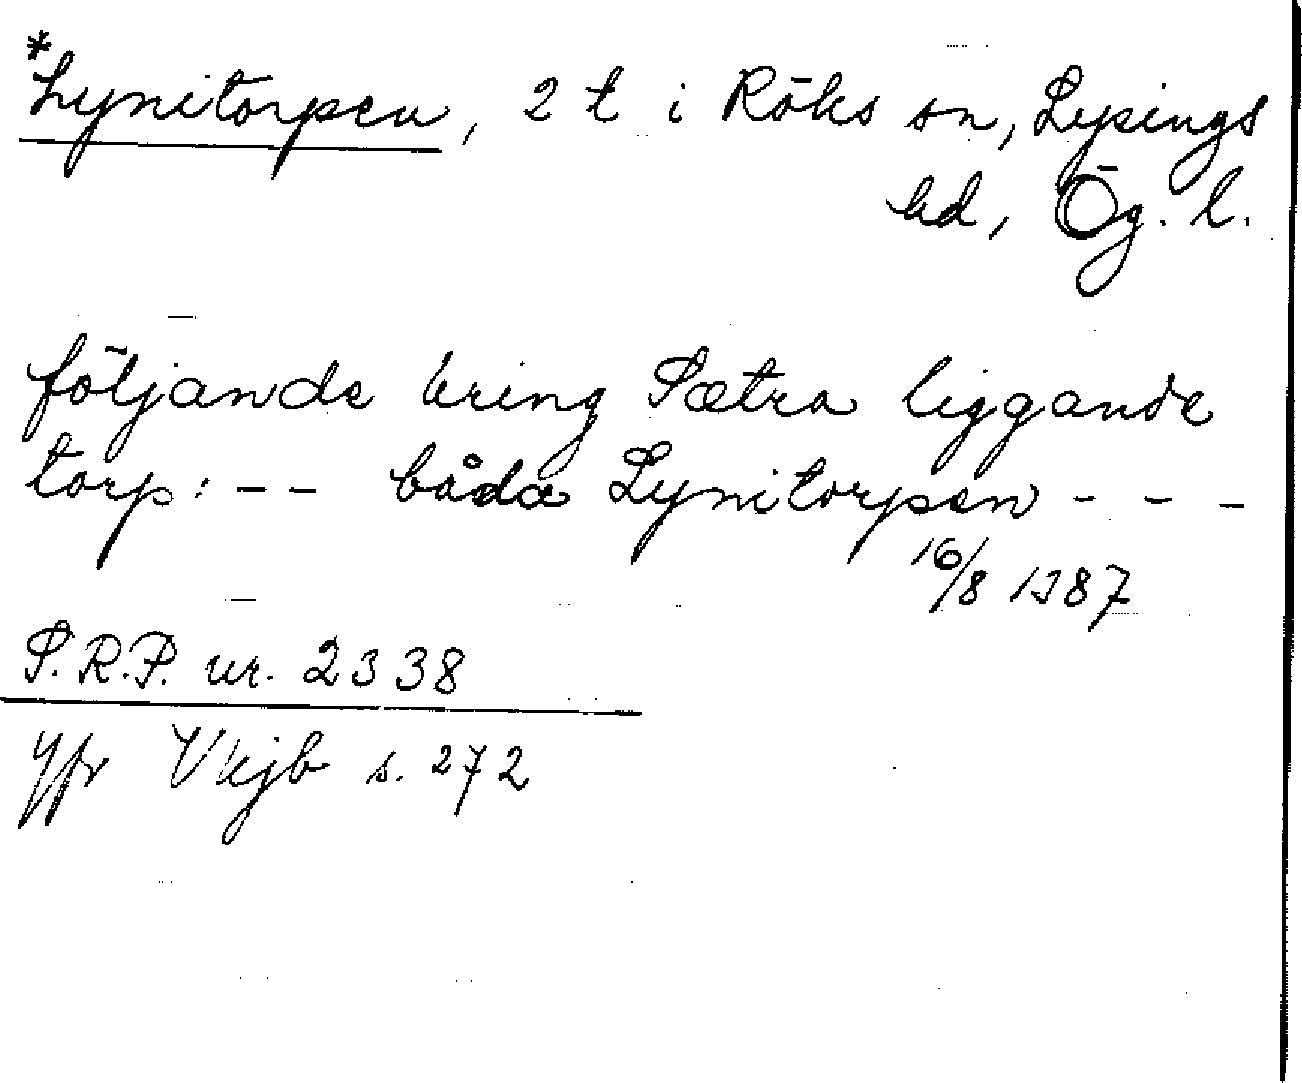 *Lynitorpen, 2 t i Röks sn, Lysings
hd, Ög. l.
följande kring Sætra liggande
torp: -- båda Lynitorpen - - -
16/8 1387
S.R.P. nr. 2338
Jfr Vkjb s. 272